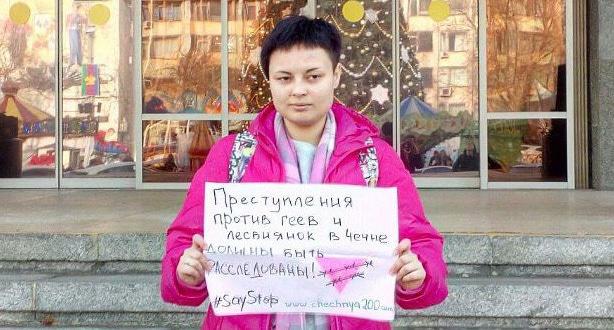 Преступления
против геев и
лесбиянок в Чечне
должны быть
расследованы!
#SayStop www.chechnya200.com